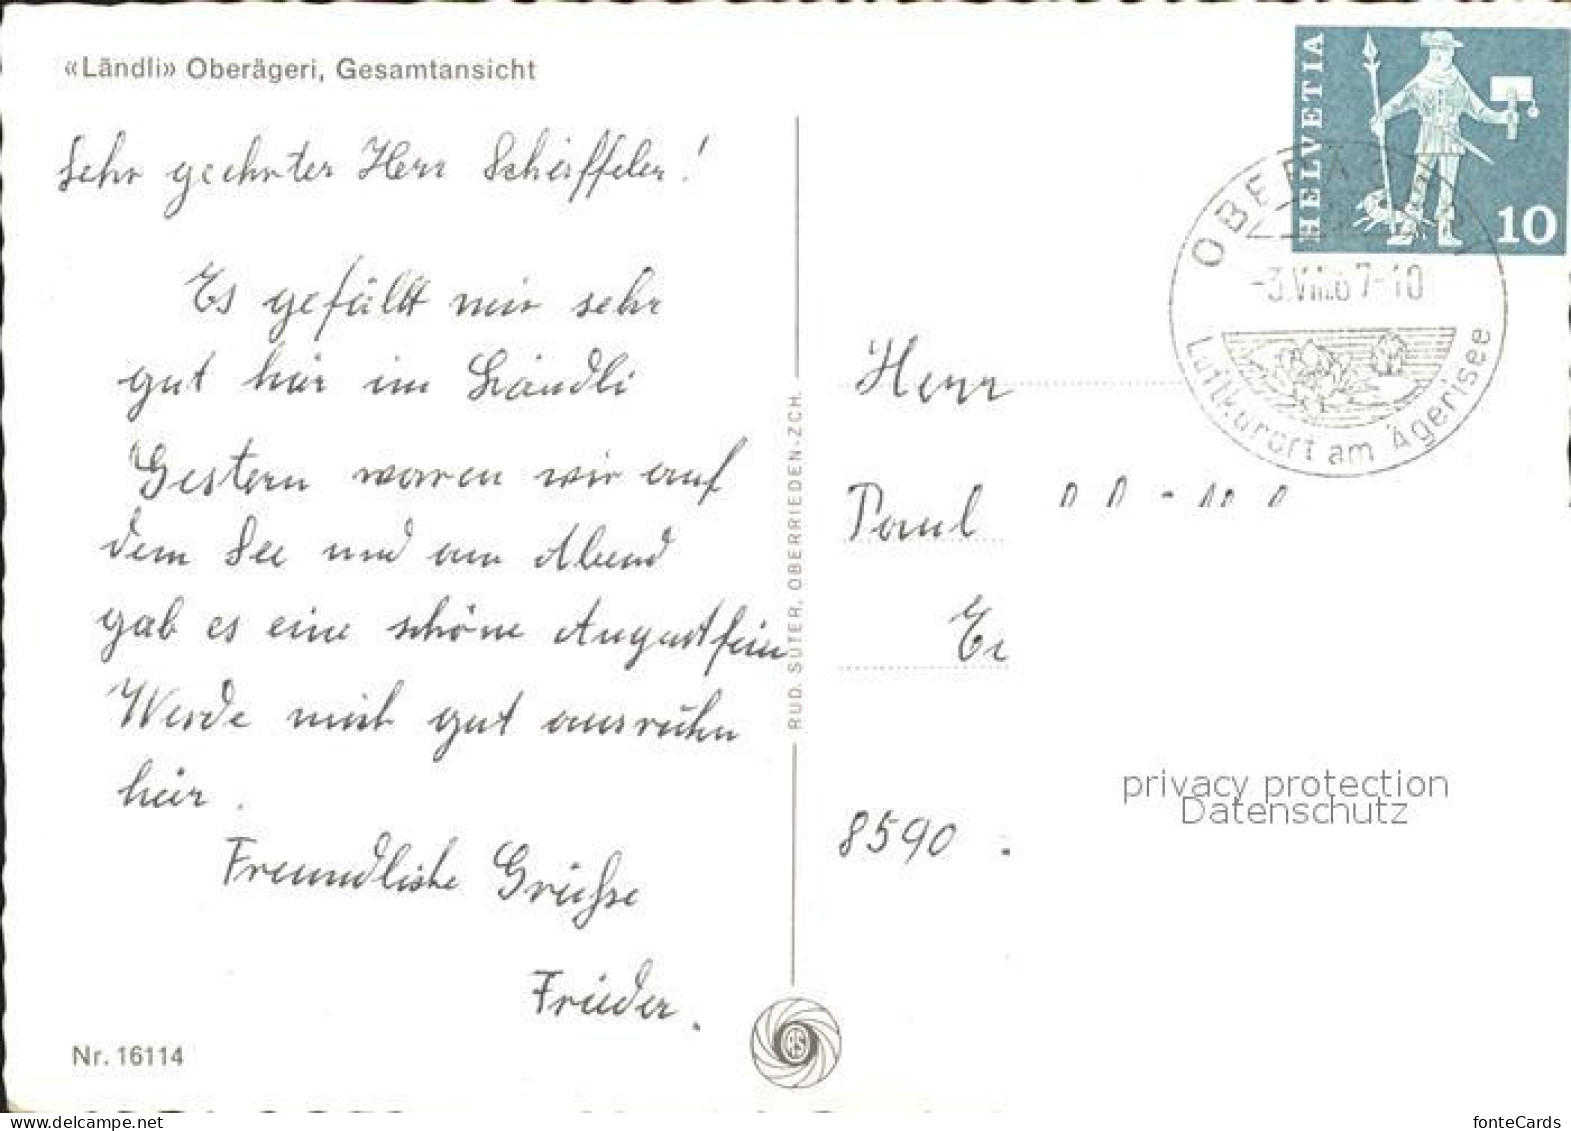 «Ländli» Oberägeri, Gesamtansicht
Sehr geehrter Herr Scheiffeler!
Es gefällt mir sehr
gut hier im Ländli
Gestern waren wir auf
dem See und am Abend
gab es eine schöne Augustfein
Werde mich gut ausruhn
hier.
Freundliche Grüsse
Frieder.
Nr. 16114
RUD. SUTER, OBERRIEDEN-ZCH.
RS
HELVETIA
10
OBERÄGERI
-3.VIII.67-10
Luftkurort am Ägerisee
Herr
Paul
8590
privacy protection
Datenschutz
www.delcampe.net
fonteCards